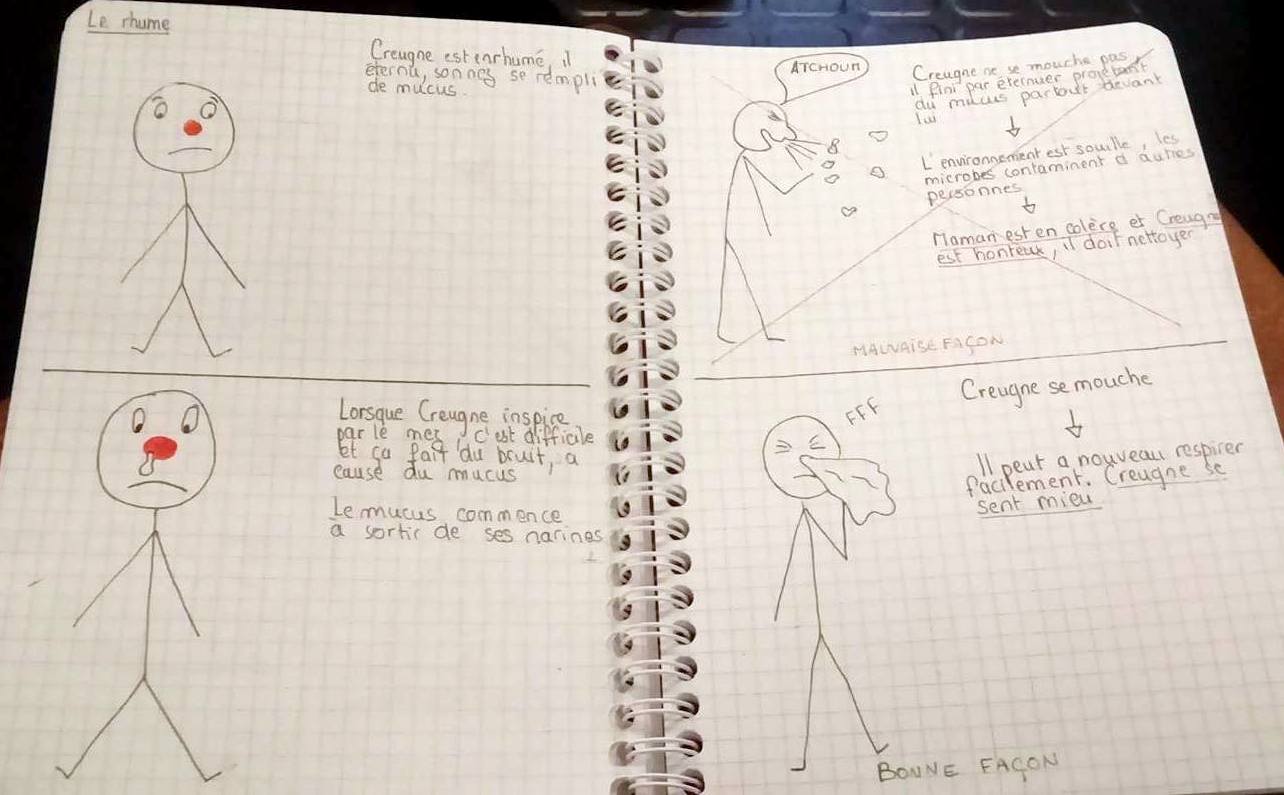 Le rhume
Creugne est enrhumé, il
éternu, son nez se rempli
de mucus.
Lorsque Creugne inspire
par le mez, c'est difficile
et ça fait du bruit, a
cause du mucus
Le mucus commence
a sortir de ses narines
ATCHOUM
Creugne ne se mouche pas,
il fini par éternuer projetant
du mucus partout devant
lui
↓
L'environnement est souillé, les
microbes contaminent d autres
personnes
↓
Maman est en colère et Creugne
est honteux, il doit nettoyer
MAUVAISE FAÇON
FFF
Creugne se mouche
↓
Il peut a nouveau respirer
facilement. Creugne se
sent mieu
BONNE FAÇON